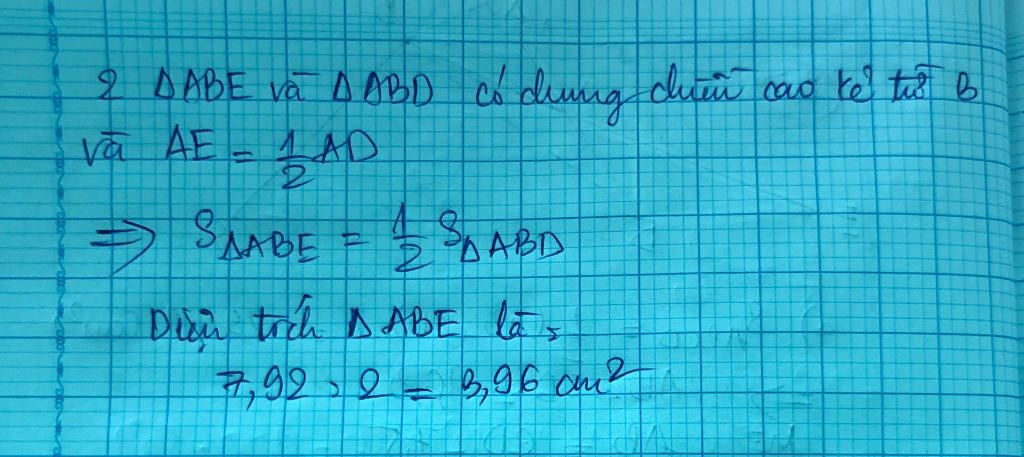 2 ΔABE và ΔABD có chung chiều cao kẻ từ B
và AE = 1/2 AD
=> SΔABE = 1/2 SΔABD
Diện tích ΔABE là:
7,92 : 2 = 3,96 cm²